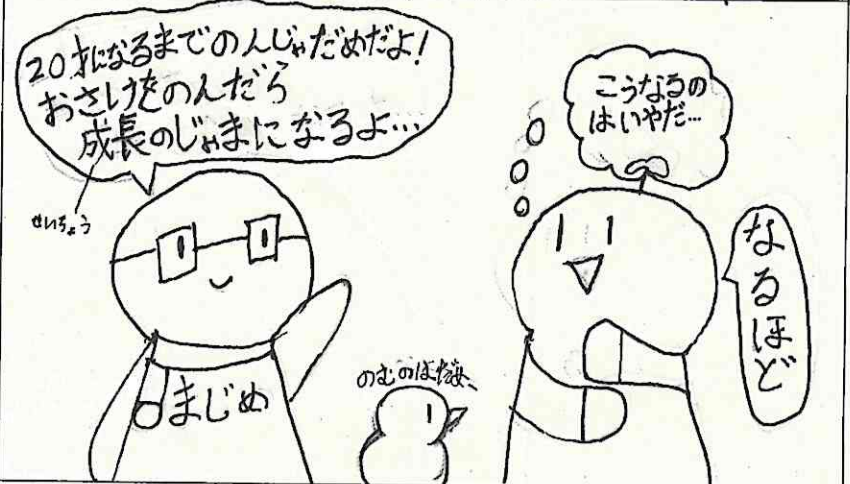 20才になるまでのんじゃだめだよ!
おさけをのんだら
成長のじゃまになるよ…
せいちょう
まじめ
のむのはだめ、
こうなるの
はいやだ…
なるほど